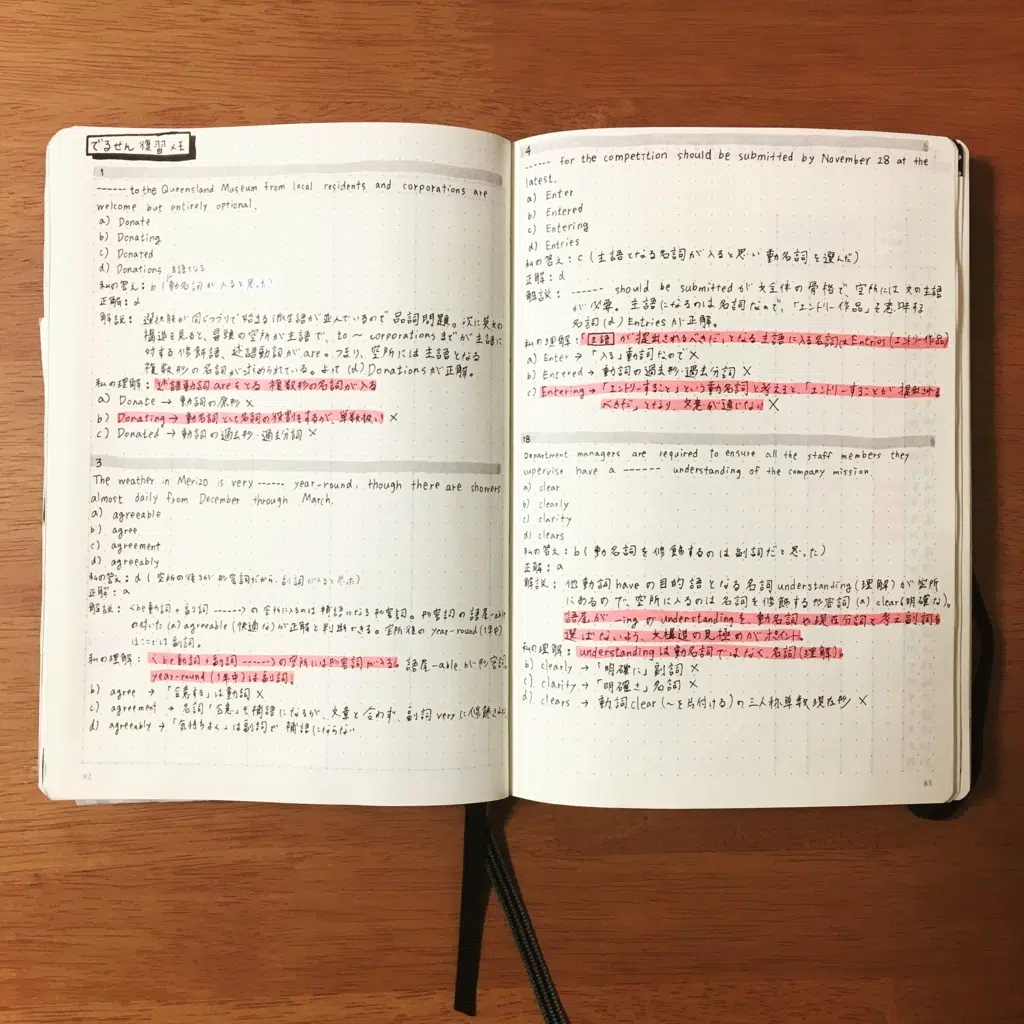 でるせん 復習メモ
1
------ to the Queensland Museum from local residents and corporations are
welcome but entirely optional.
a) Donate
b) Donating
c) Donated
d) Donations 主語となる
私の答え：b (動名詞が入ると思った)
正解：d
解説：選択肢が同じつづりで始まる派生語が並んでいるので品詞問題。次に英文の
構造を見ると、冒頭の空所が主語で、to ~ corporationsまでが主語に
対する修飾語、述語動詞がare。つまり、空所には主語となる
複数形の名詞が求められている。よって(d) Donationsが正解。
私の理解：述語動詞areをとる複数形の名詞が入る
a) Donate → 動詞の原形 ×
b) Donating → 動名詞として名詞の役割をするが、単数扱い! ×
c) Donated → 動詞の過去形・過去分詞 ×
3
The weather in Merizo is very ------ year-round, though there are showers
almost daily from December through March.
a) agreeable
b) agree
c) agreement
d) agreeably
私の答え：d (空所の後ろが形容詞だから、副詞が入ると思った)
正解：a
解説：<be動詞+副詞 ------>の空所に入るのは補語になる形容詞。形容詞の語尾-able
の付いた(a) agreeable (快適な)が正解と判断できる。空所後のyear-round (1年中)
はここでは副詞。
私の理解：<be動詞+副詞 ------>の空所には形容詞が入る。語尾-ableも形容詞
year-round (1年中)は副詞。
b) agree → 「合意する」は動詞 ×
c) agreement → 名詞「合意」も補語になるが、文意と合わず、副詞veryに修飾されない
d) agreeably → 「気持ちよく」は副詞で補語にならない
82
4
------ for the competition should be submitted by November 28 at the
latest.
a) Enter
b) Entered
c) Entering
d) Entries
私の答え：c (主語となる名詞が入ると思い動名詞を選んだ)
正解：d
解説：------ should be submittedが文全体の骨格で、空所には文の主語
が必要。主語になるのは名詞なので、「エントリー作品」を意味する
名詞(d) Entriesが正解。
私の理解：「主語が提出されるべきだ」となる主語に入る名詞はEntries(エントリー作品)
a) Enter → 「入る」動詞なので ×
b) Entered → 動詞の過去形・過去分詞 ×
c) Entering → 「エントリーすること」という動名詞と考えると、「エントリーすることが提出される
べきだ」となり、文意が通じない ×
18
Department managers are required to ensure all the staff members they
supervise have a ------ understanding of the company mission.
a) clear
b) clearly
c) clarity
d) clears
私の答え：b (動名詞を修飾するのは副詞だと思った)
正解：a
解説：他動詞haveの目的語となる名詞understanding(理解)が空所
にあるので、空所に入るのは名詞を修飾する形容詞(a) clear(明確な)。
語尾が-ingのunderstandingを、動名詞や現在分詞と考え副詞を
選ばないよう、文構造の見極めがポイント。
私の理解：understandingは動名詞ではなく、名詞(理解)。
b) clearly → 「明確に」副詞 ×
c) clarity → 「明確さ」名詞 ×
d) clears → 動詞clear (~を片付ける)の三人称単数現在形 ×
83